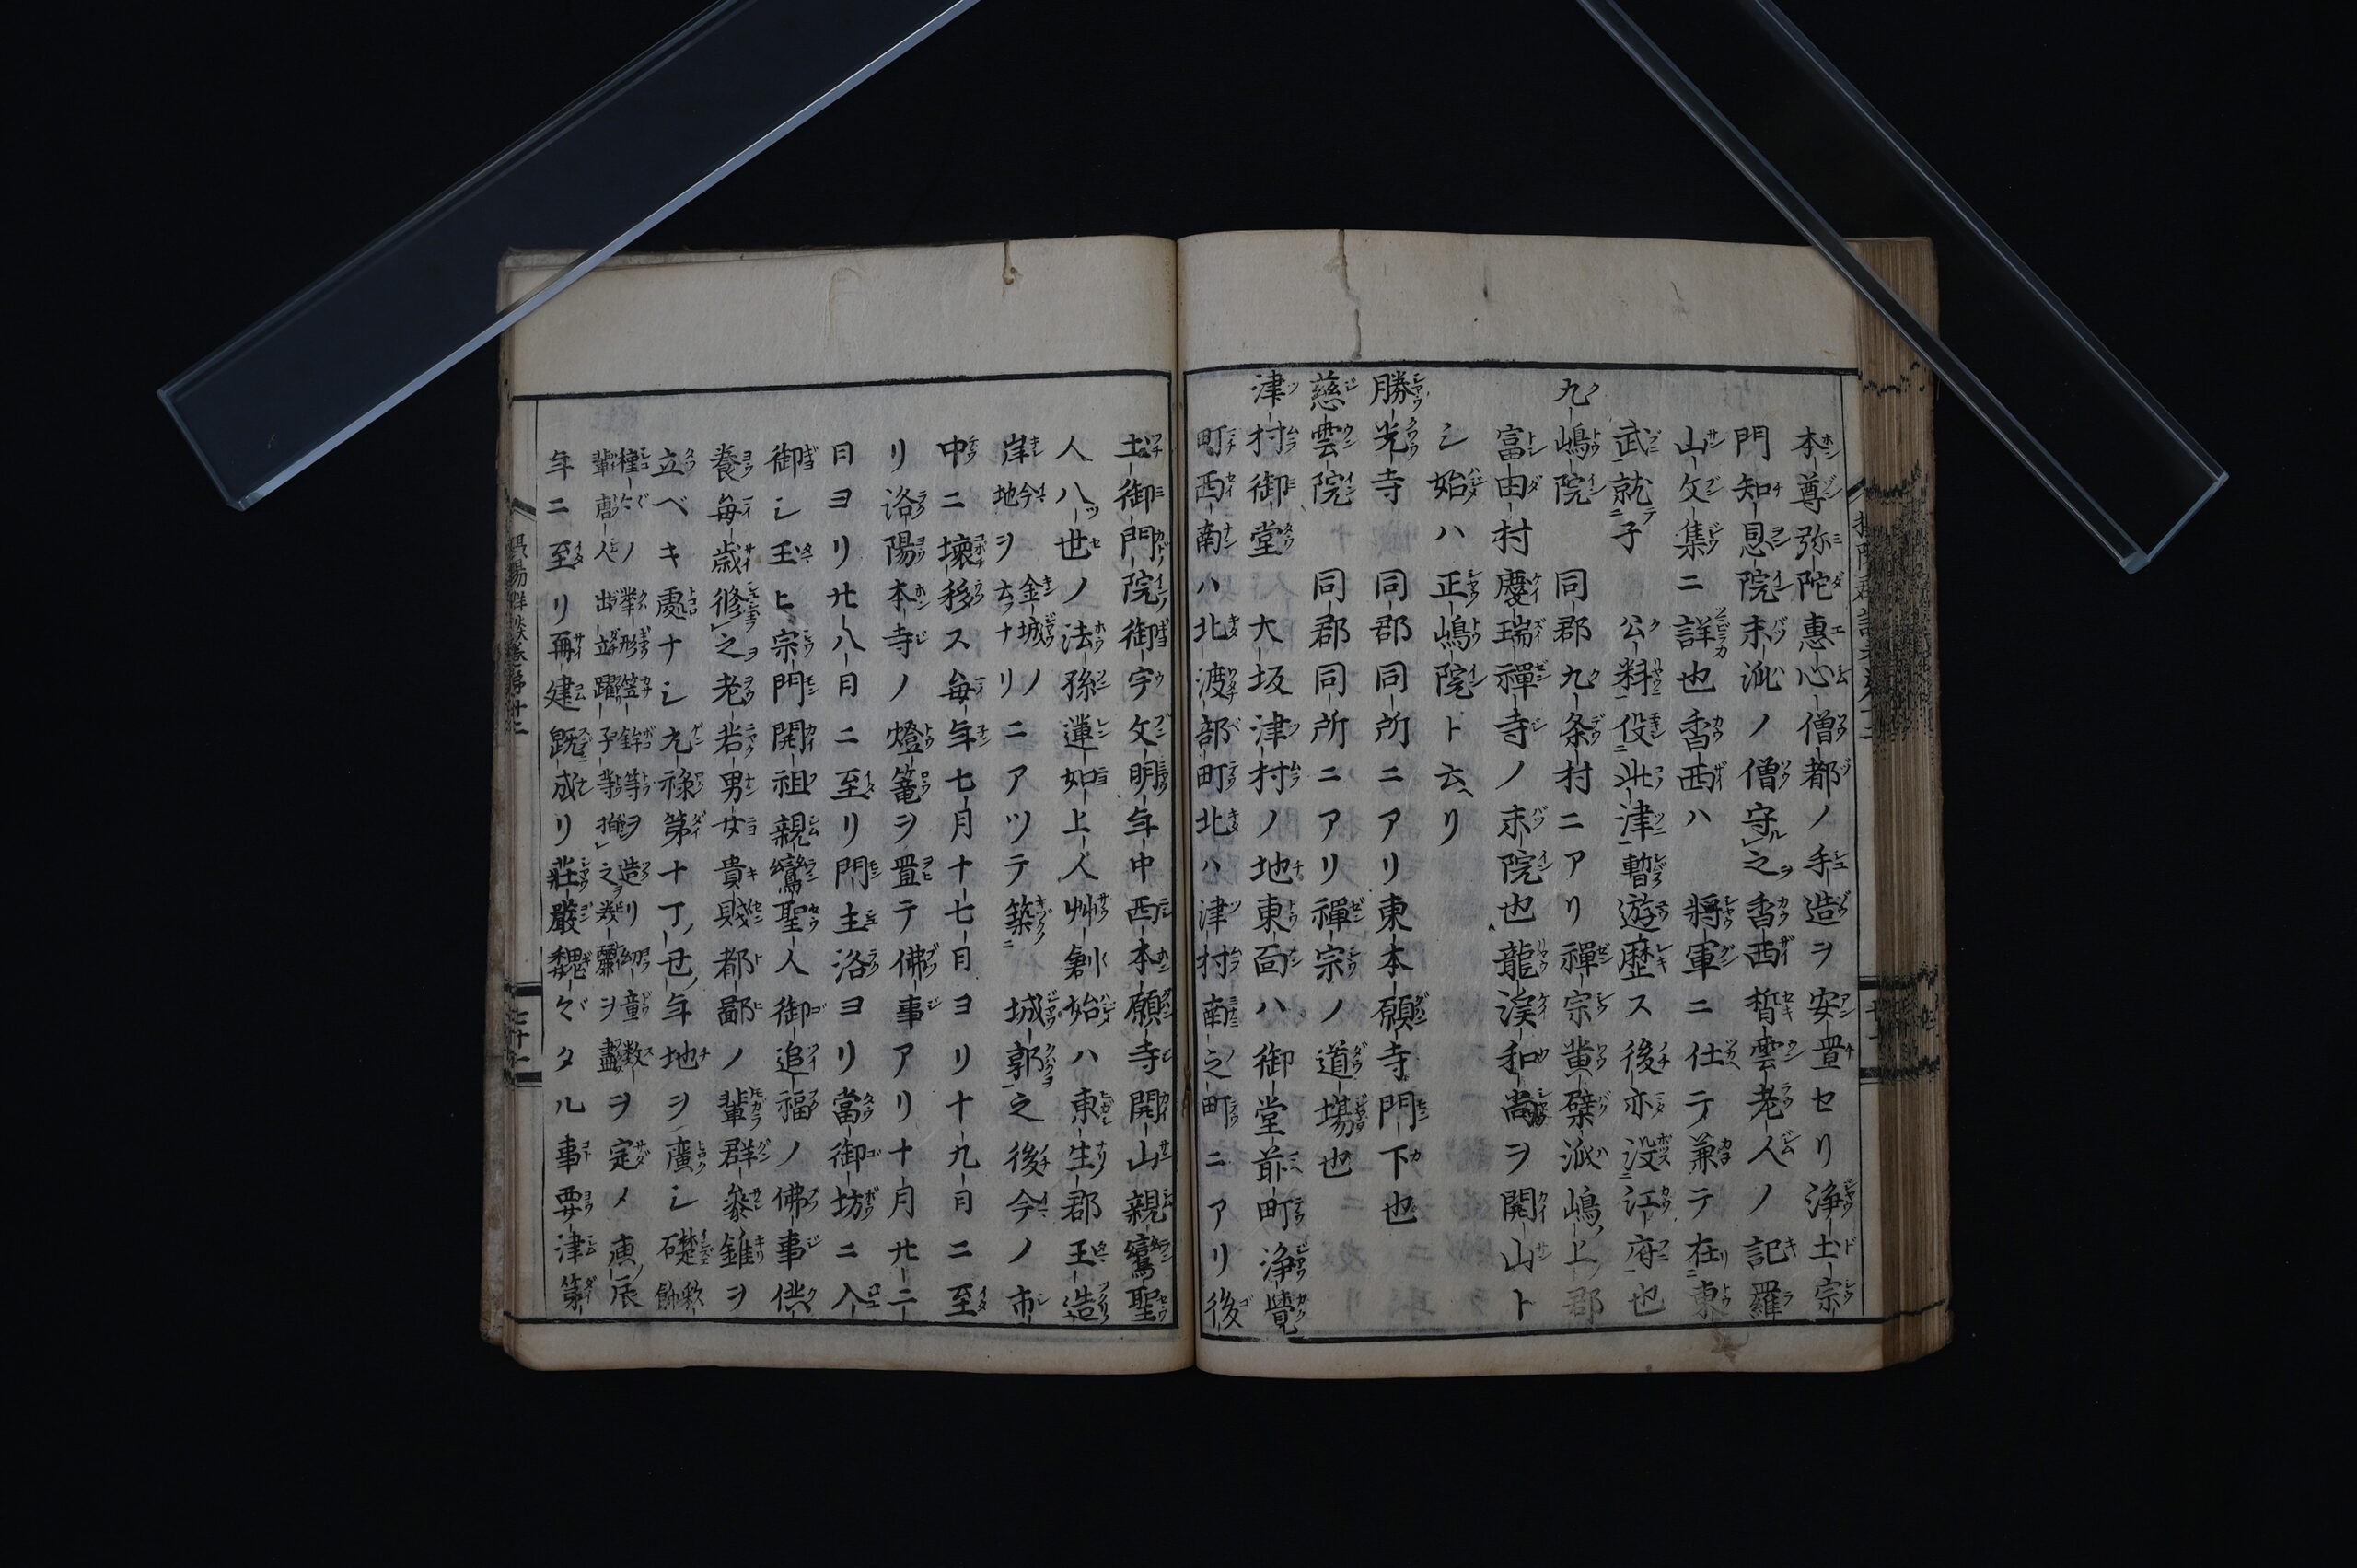 本尊弥陀惠心僧都ノ手造ヲ安置セリ浄土宗
門知恩院末派ノ僧守之香西晢雲老人ノ記羅
山文集ニ詳也香西ハ 將軍ニ仕テ兼テ在東
武就子 公料役此津暫遊歴ス後亦没江府也
九嶋院 同郡九条村ニアリ禪宗黄檗派嶋上郡
富田村慶瑞禪寺ノ末院也龍渓和尚ヲ開山ト
シ始ハ正嶋院ト云リ
勝光寺 同郡同所ニアリ東本願寺門下也
慈雲院 同郡同所ニアリ禪宗ノ道場也
津村御堂 大坂津村ノ地東面ハ御堂前町浄覺
町西南ハ北渡部町北ハ津村南之町ニアリ後
土御門院御宇文明年中西本願寺開山親鸞聖
人八世ノ法孫蓮如上人艸創始ハ東生郡玉造
岸今地ヲ金城ノ去ナリニアツテ築城郭之後今ノ市
中ニ壞移ス毎年七月十七日ヨリ十九日ニ至
リ洛陽本寺ノ燈篭ヲ置テ佛事アリ十月廿二
日ヨリ廿八日ニ至リ門主洛ヨリ當御坊ニ入
御シ玉ヒ宗門開祖親鸞聖人御追福ノ佛事供
養毎歳修之老若男女貴賎都鄙ノ輩群參錐ヲ
立ベキ處ナシ元祿第十丁丑年地ヲ廣シ礎餝
種々ノ擧形笠鉾等ヲ造リ幼童数ヲ定メ
輩唐人出立躍子等拍之美麗ヲ盡
年ニ至リ再建既成リ莊嚴巍々タル事要津第